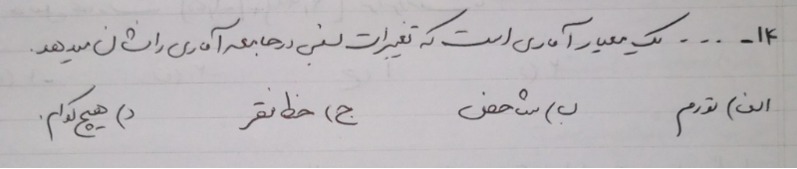 ۱۴- .... یک معیار آماری است که تغییرات نسبی در جامعه آماری را نشان میدهد.
الف) تورم ب) شاخص ج) خط فقر د) هیچ کدام.